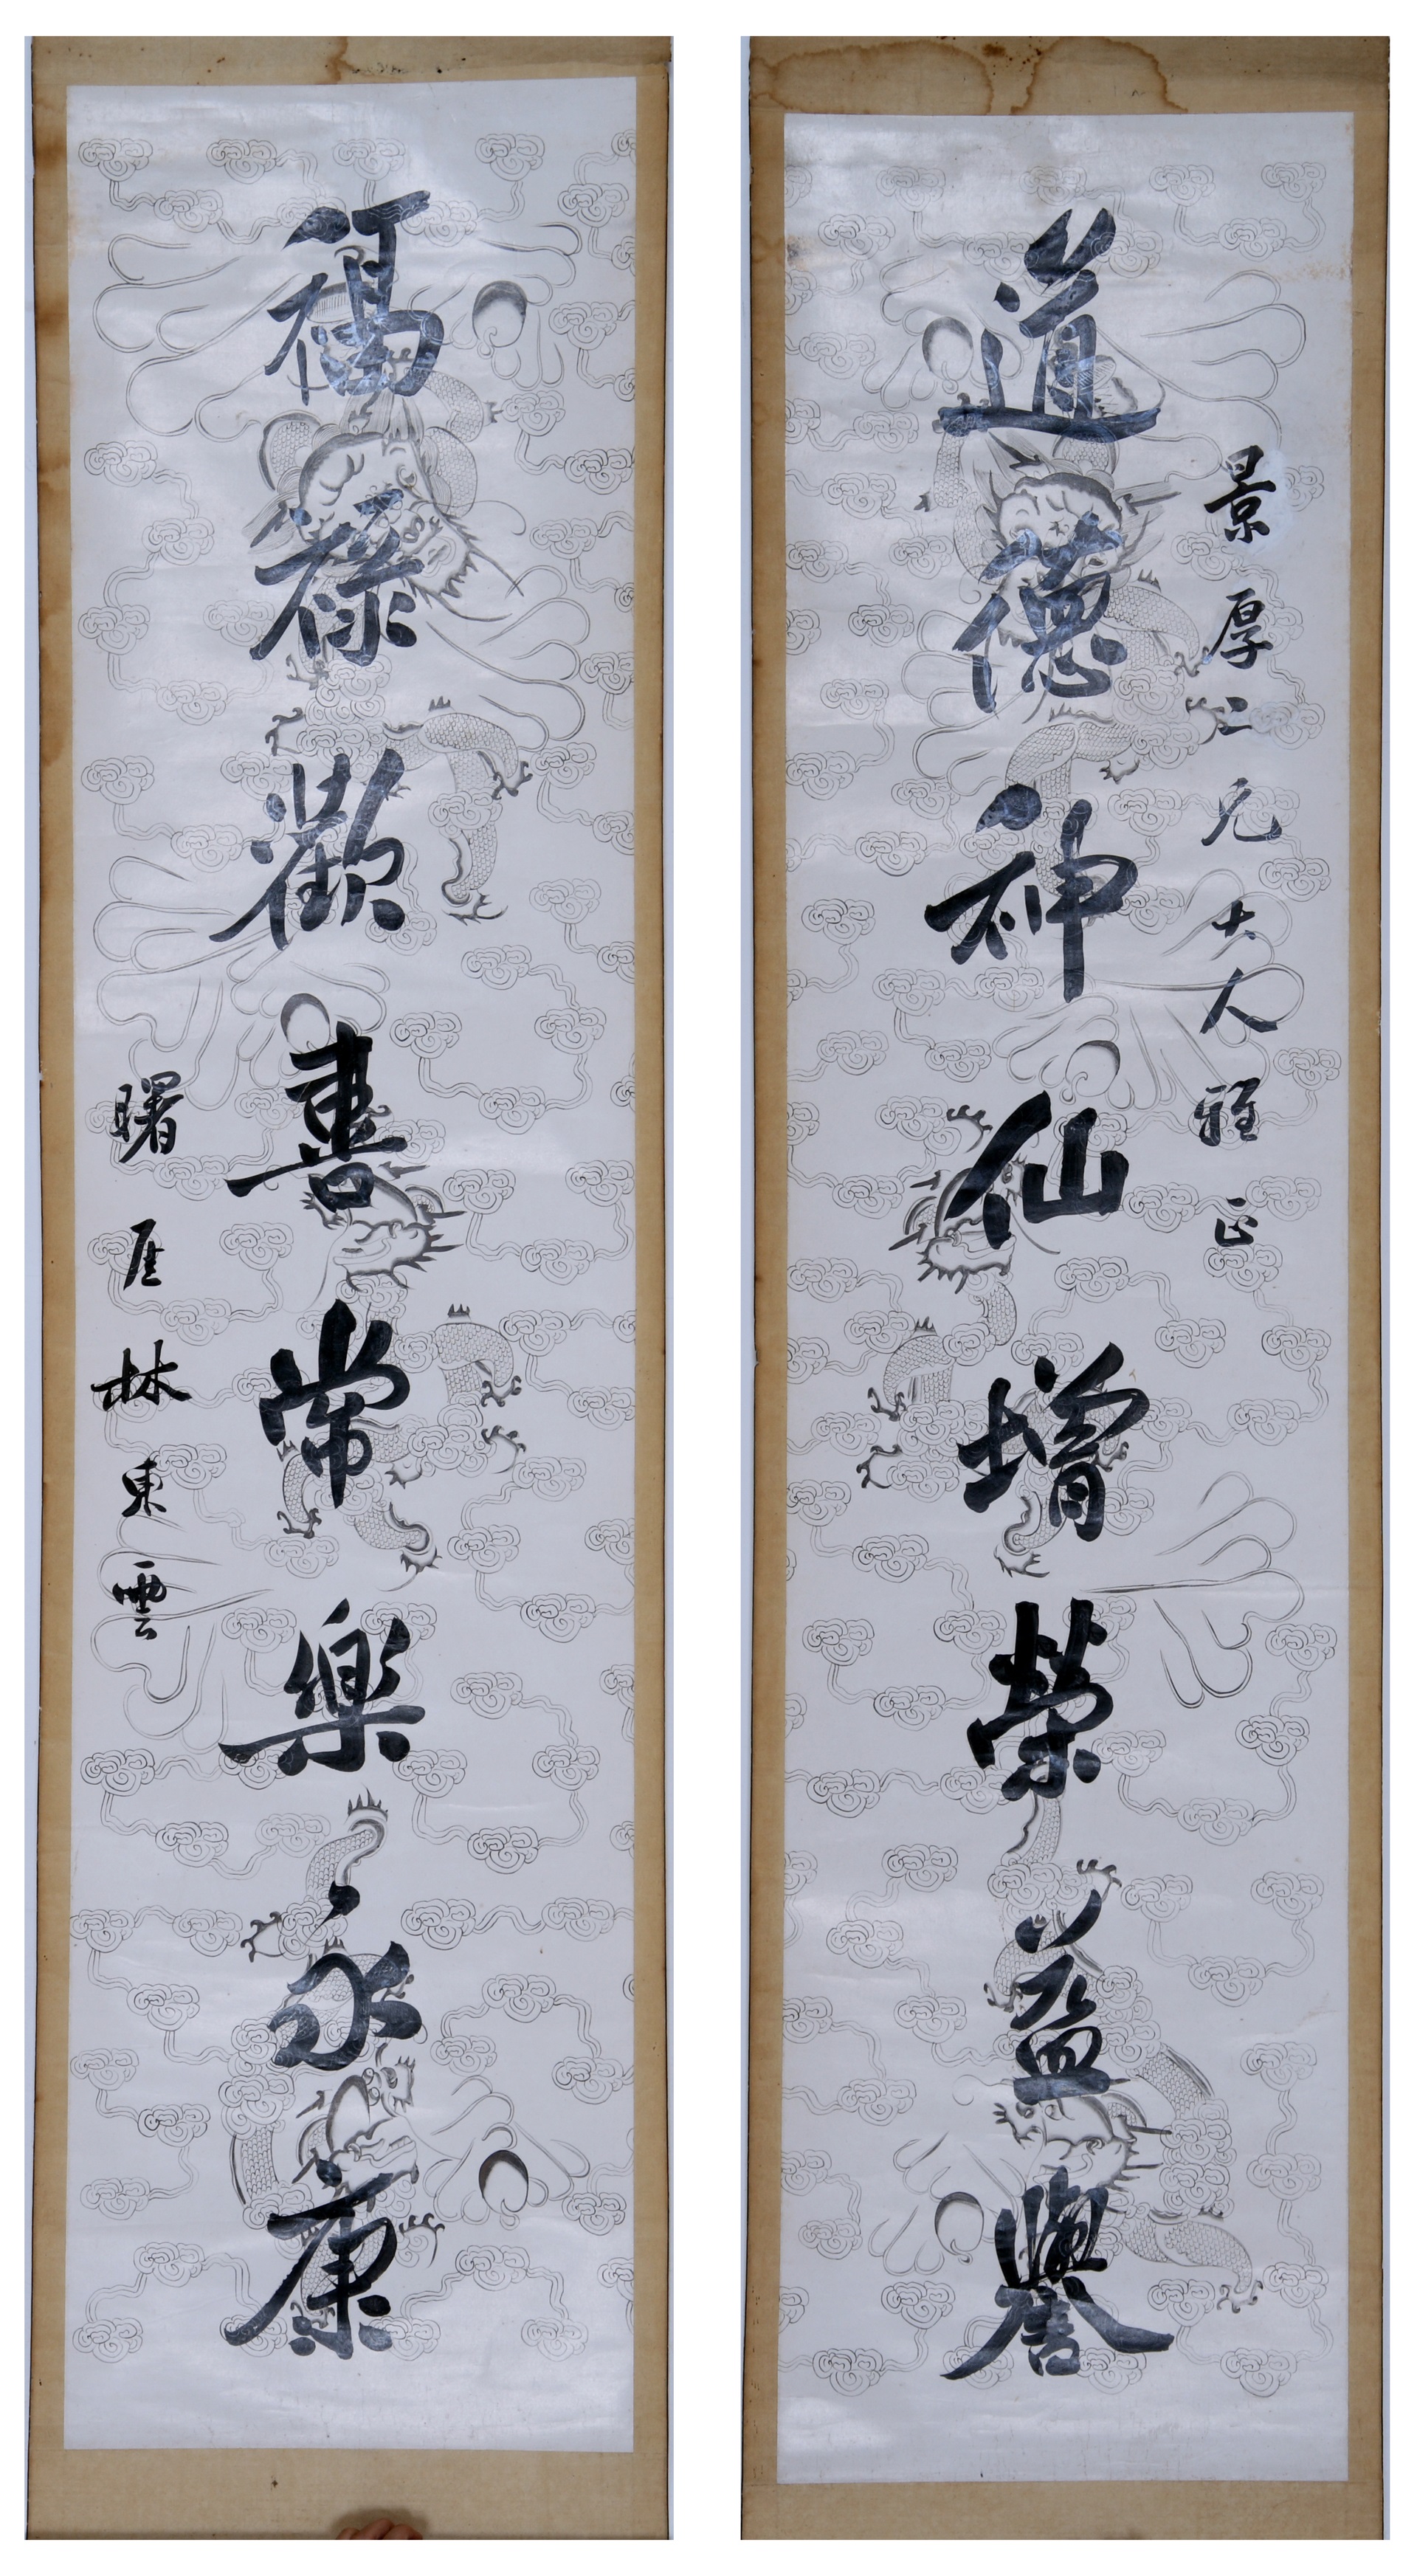 景厚二兄大人雅正
道德神仙增榮益譽
福祿歡喜常樂永康
曙厓林東雲